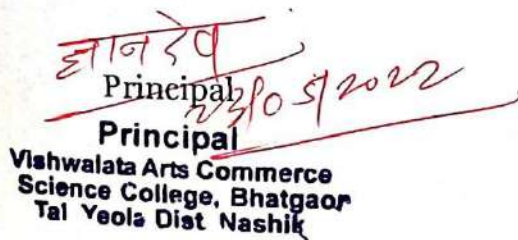 ज्ञानदेव
Principal
23/05/2022
Principal
Vishwalata Arts Commerce
Science College, Bhatgaon
Tal Yeola Dist Nashik